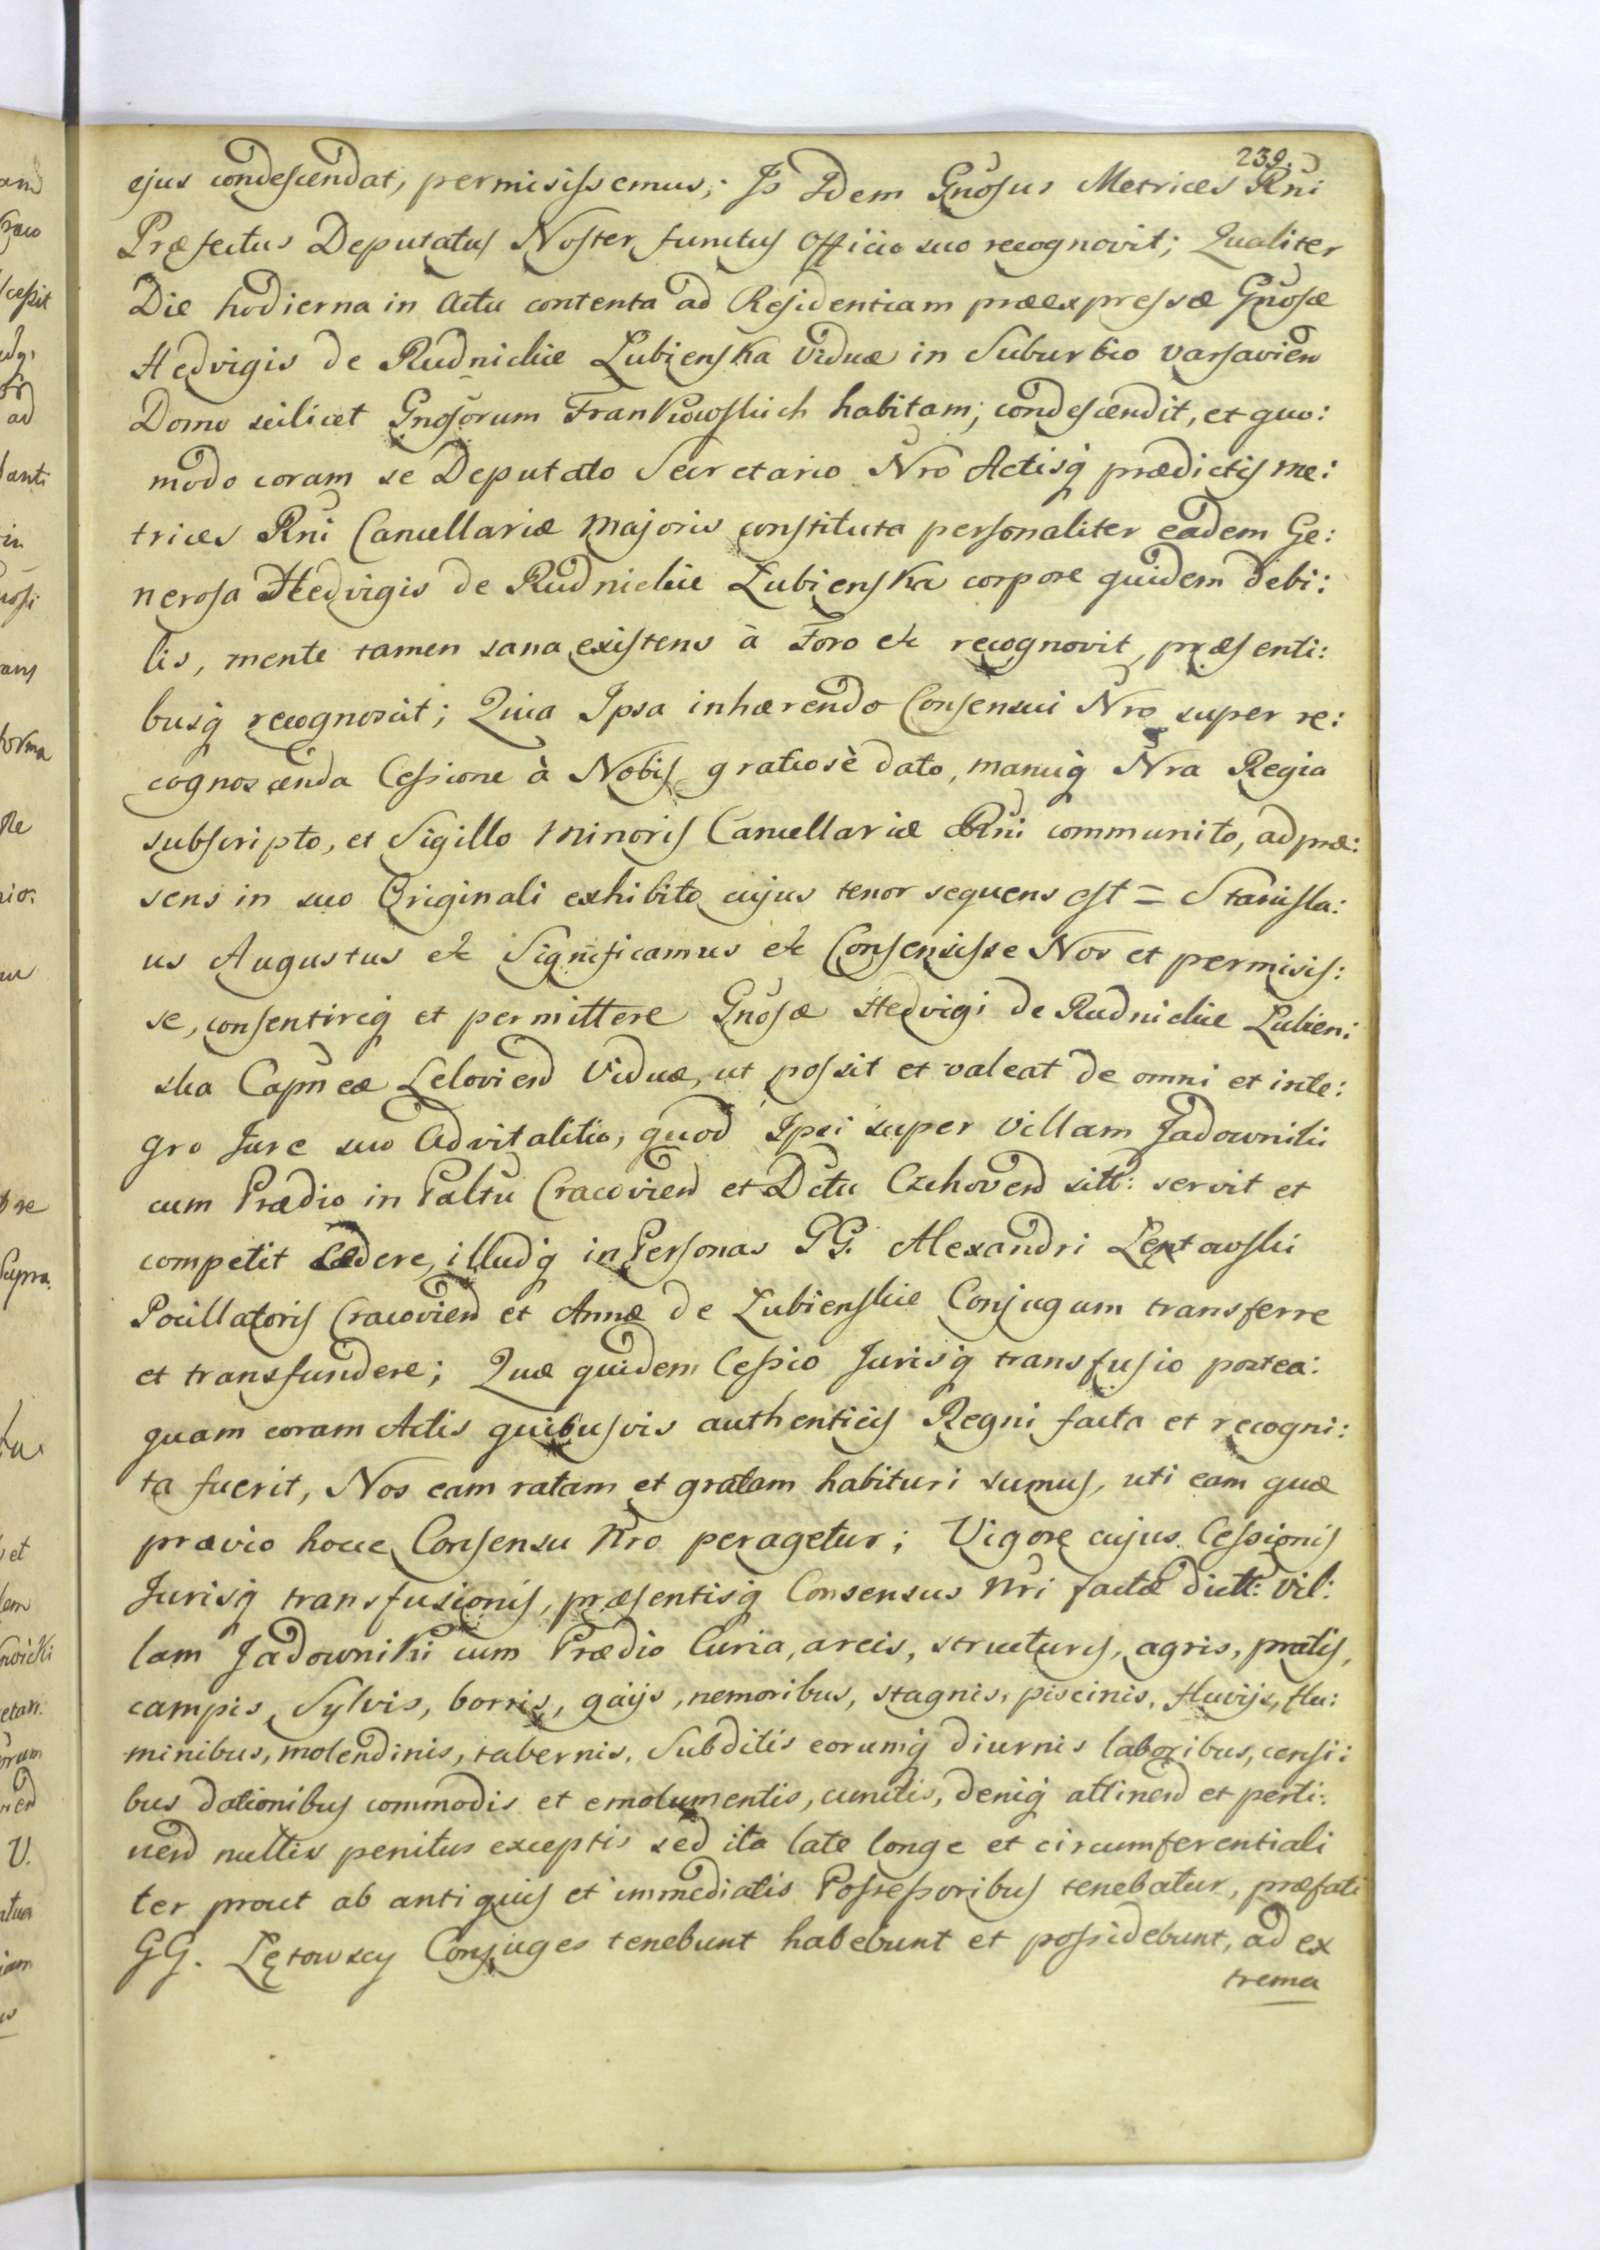 239.
ejus condescendat, permisissemus; Is Idem Gnosus Metrices Rni
Præfectus Deputatus Noster functus Officio suo recognovit; Qualiter
Die hodierna in Actu contenta ad Residentiam præexpressæ Gnosæ
Hedvigis de Rudnickie Lubienska Viduæ in Suburbio Varsavien
Domo scilicet Gnosorum Frankowskich habitam; condescendit, et quo:
modo coram se Deputato Secretario Nro Actisq prædictis me:
trices Rni Cancellariæ Majoris constituta personaliter eadem Ge:
nerosa Hedvigis de Rudnickie Lubienska corpore quidem debi:
lis, mente tamen sana existens à Foro etc recognovit, præsenti:
busq recognoscit; Quia Ipsa inhærendo Consensui Nro super re:
cognoscenda Cessione à Nobis gratiosè dato, manuq Nra Regia
subscripto, et Sigillo Minoris Cancellariæ Rni communito, ad præ:
sens in suo Originali exhibito cujus tenor sequens est = Stanisla:
us Augustus etc Significamus etc Consensisse Nos et permisis:
se, consentireq et permittere Gnosæ Hedvigi de Rudnickie Lubien:
ska Capneæ Lelovien Viduæ, ut possit et valeat de omni et inte:
gro Jure suo Advitalitio, quod Ipsi super Villam Jadowniki
cum Prædio in Paltu Cracovien et Dctu Czchoven sitt: servit et
competit Cedere, illudq in Personas GG. Alexandri Lentowski
Pocillatoris Cracovien et Annæ de Lubienskie Conjugum transferre
et transfundere; Quæ quidem Cessio Jurisq transfusio postea:
quam coram Actis quibusvis authenticis Regni facta et recogni:
ta fuerit, Nos eam ratam et gratam habituri sumus, uti eam quæ
prævio hocce Consensu Nro peragetur; Vigore cujus Cessionis
Jurisq transfusionis, præsentisq Consensus Nri factæ dictt: Vil:
lam Jadowniki cum Prædio Curia, areis, structuris, agris, pratis,
campis, Sylvis, borris, gaijs, nemoribus, stagnis, piscinis, fluvijs, flu:
minibus, molendinis, tabernis, Subditis eorumq diurnis laboribus, censi:
bus dationibus commodis et emolumentis, cunctis, deniq attinen et perti:
nen nullis penitus exceptis sed ita late longe et circumferentiali
ter prout ab antiquis et immediatis Possessoribus tenebatur, præfati
GG. Lętowscy Conjuges tenebunt habebunt et possidebunt, ad ex
trema